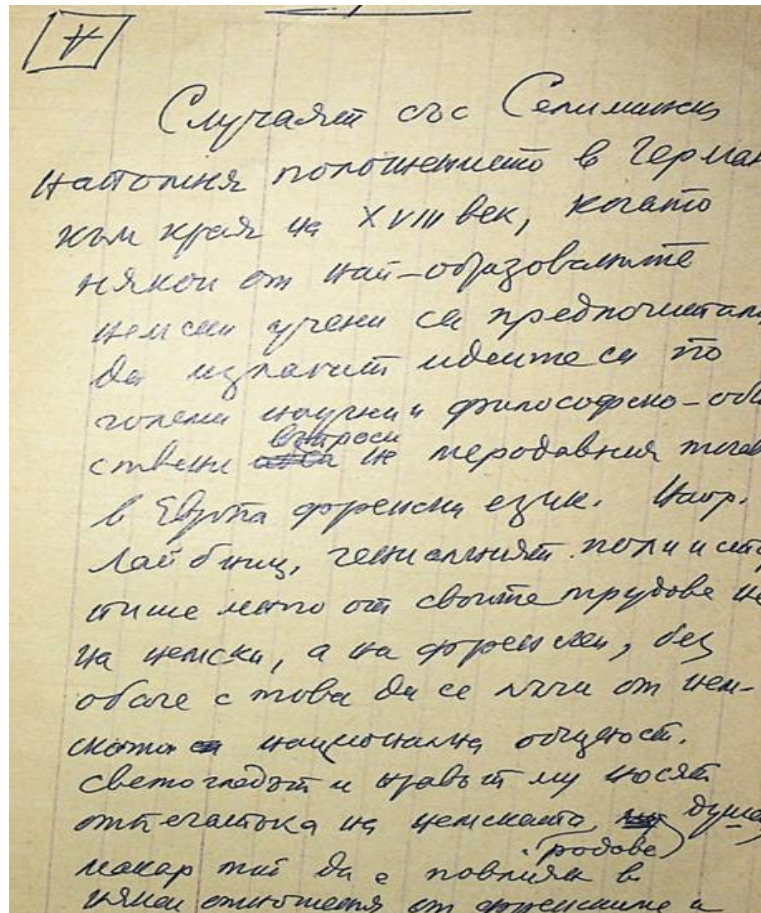 Случаят със Селимински
напомня положението в Герман
към края на XVIII век, когато
някои от най-образованите
немски учени са предпочитали
да излагат идеите си по
големи научни и философско-общ
ствени въпроси на меродавния тогав
в Европа френски език. Напр.
Лайбниц, гениалният
пише много от своите трудове не
на немски, а на френски, без
обаче с това да се лъчи от нем-
ската национална общност.
светогледът и нравът му носят
отпечатъка на немската душа,
родове
макар той да е повлиян в
някои отношения от френските и